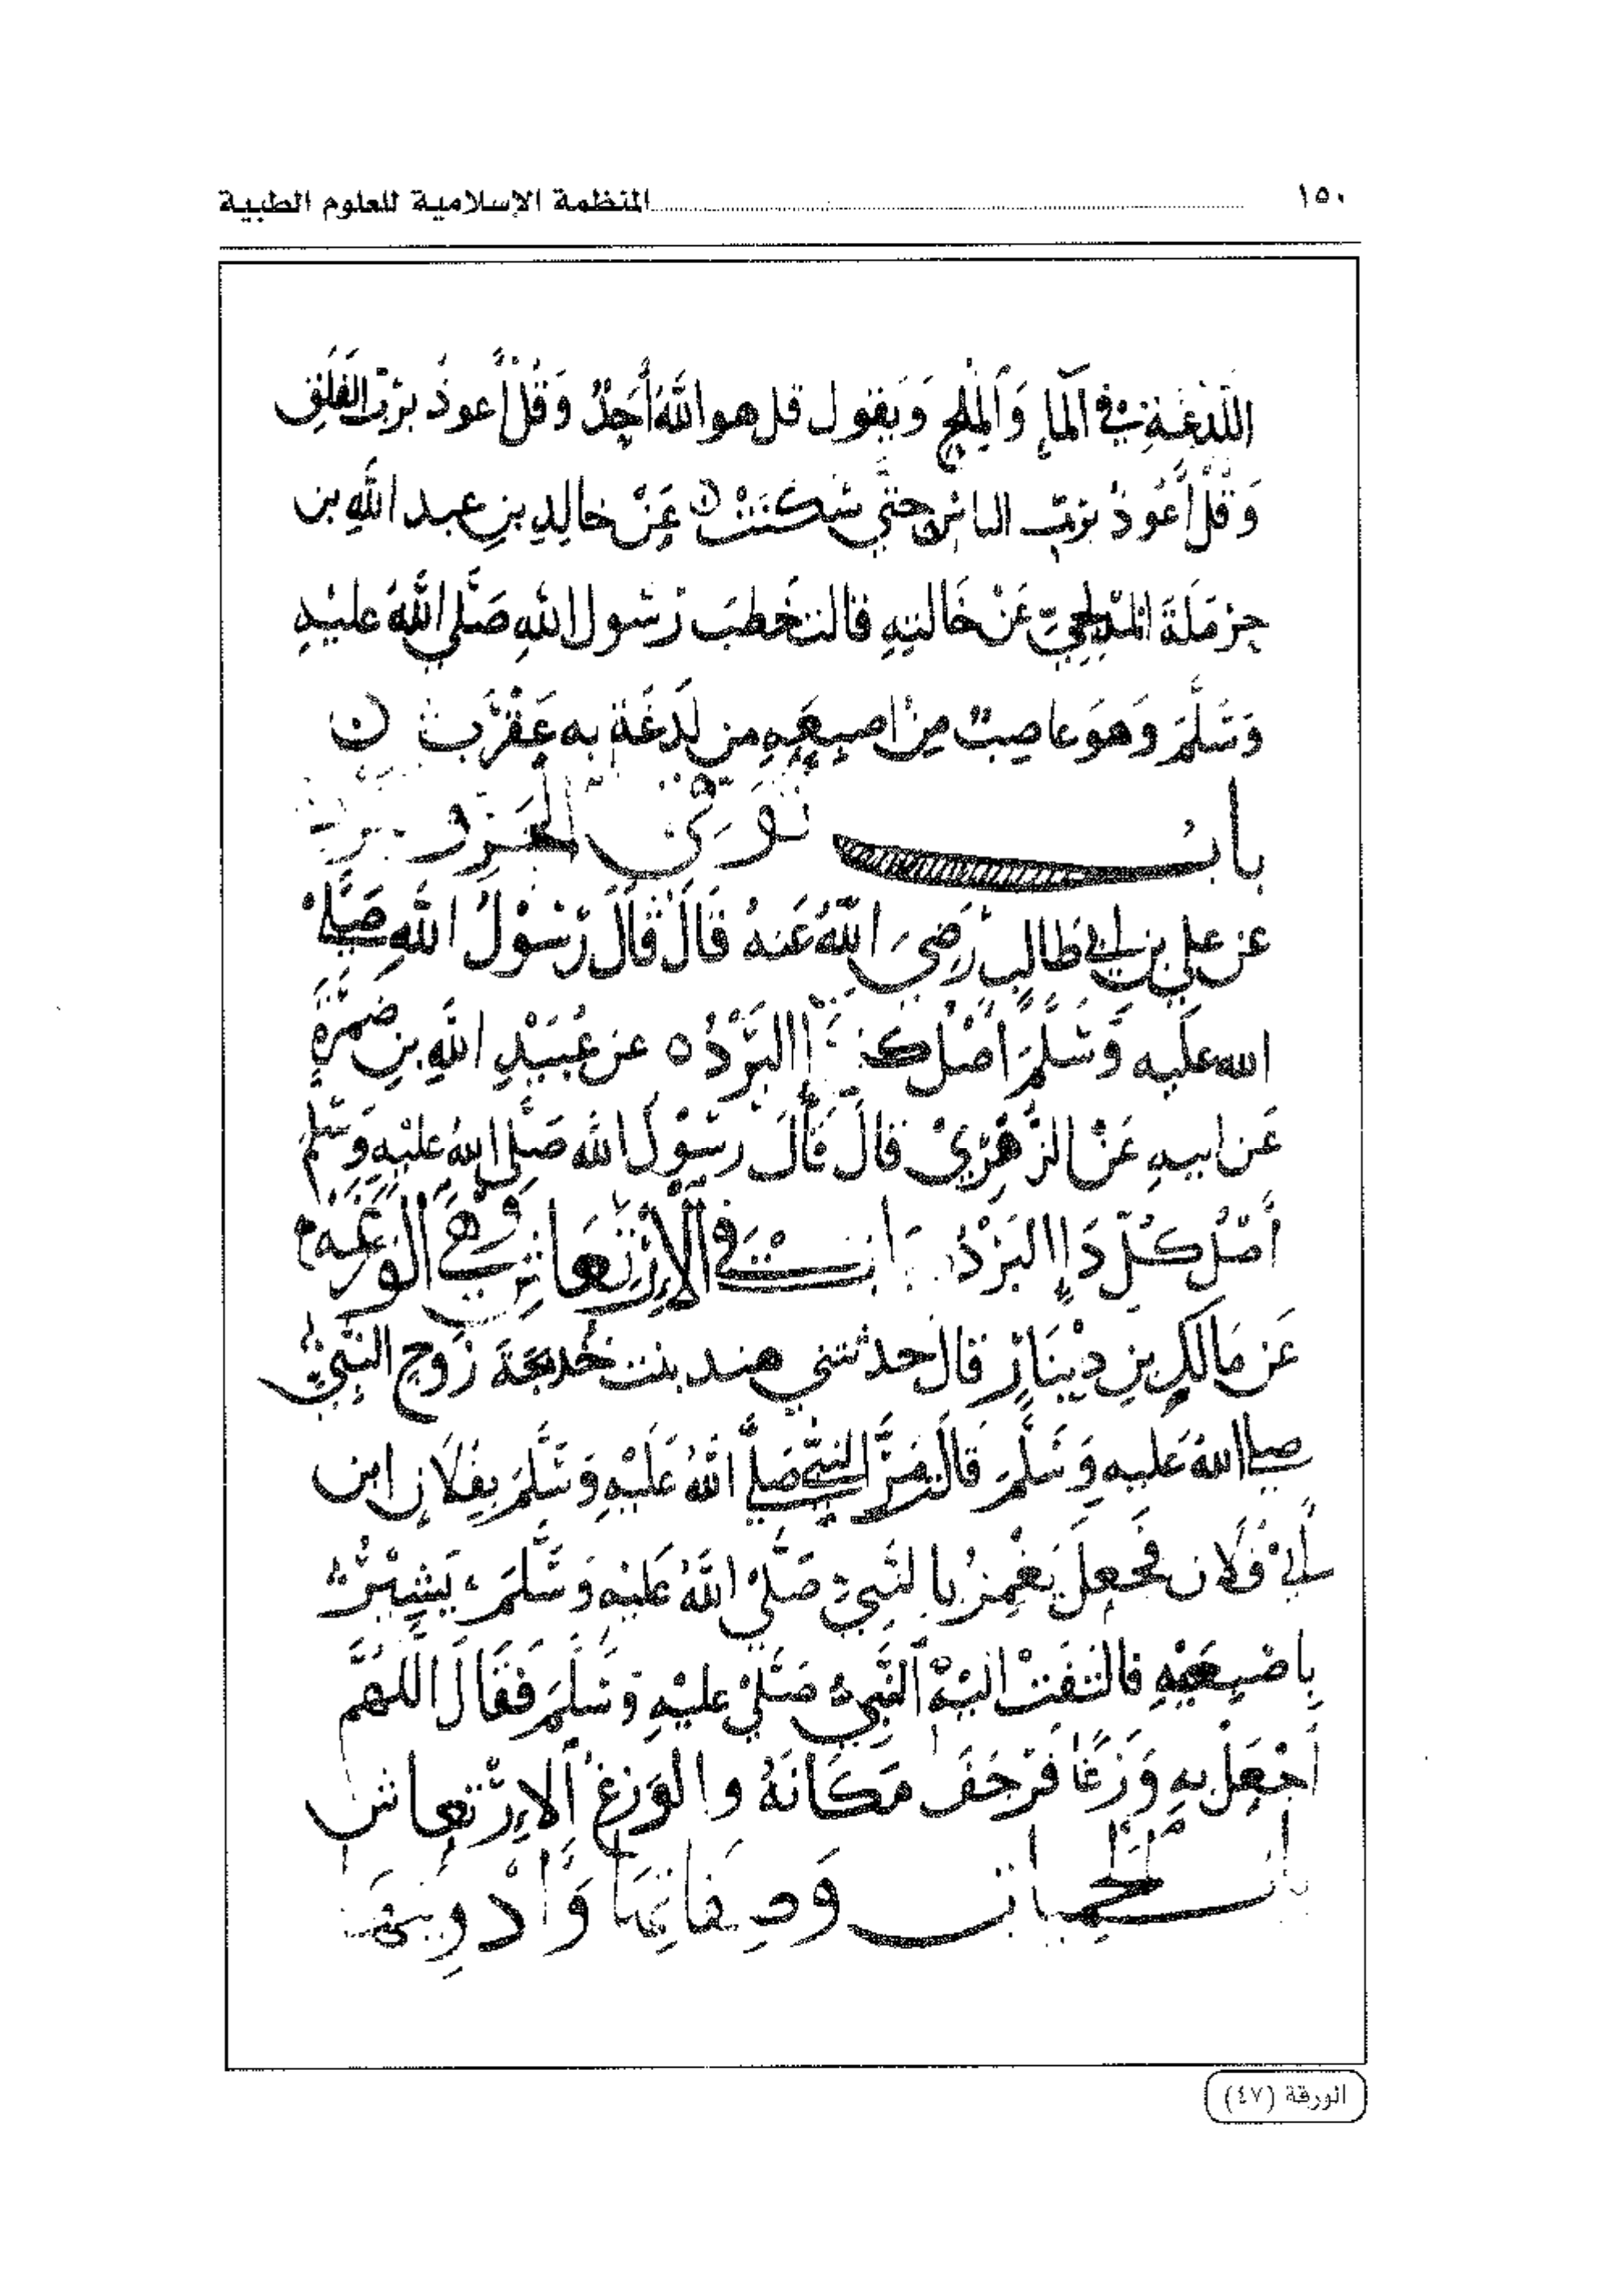 ١٥٠ المنظمة الإسلامية للعلوم الطبية
اللدغة في الماء والملح ويقول قل هو الله أحد وقل أعوذ برب الفلق
وقل أعوذ برب الناس حتى سكنت ن عن خالد بن عبد الله بن
حرملة المدلجي عن خالته قالت خطب رسول الله صلى الله عليه
وسلم وهو عاصب من اصبعه من لدغة به عقرب ن
باب توقي الحر و
عن علي بن ابي طالب رضي الله عنه قال قال رسول الله صلى
الله عليه وسلم اصل كل البرد ه عن عبيد الله بن ضمرة
عن ابيه عن الزهري قال قال رسول الله صلى الله عليه وسلم
أصل كل دا البرد باب في الارتعاش وهي
عن مالك بن دينار قال حدثتني هند بنت خديجة زوج النبي
صلى الله عليه وسلم قالت مر النبي صلى الله عليه وسلم بفلان ابن
أبي فلان فجعل يغمز بالنبي صلى الله عليه وسلم يشير
باصبعيه فالتفت اليه النبي صلى عليه وسلم فقال اللهم
اجعل به وزغا فرجف مكانه والوزغ الارتعاش
باب الحميات وصفاتها وادويتها
الورقة (٤٧)